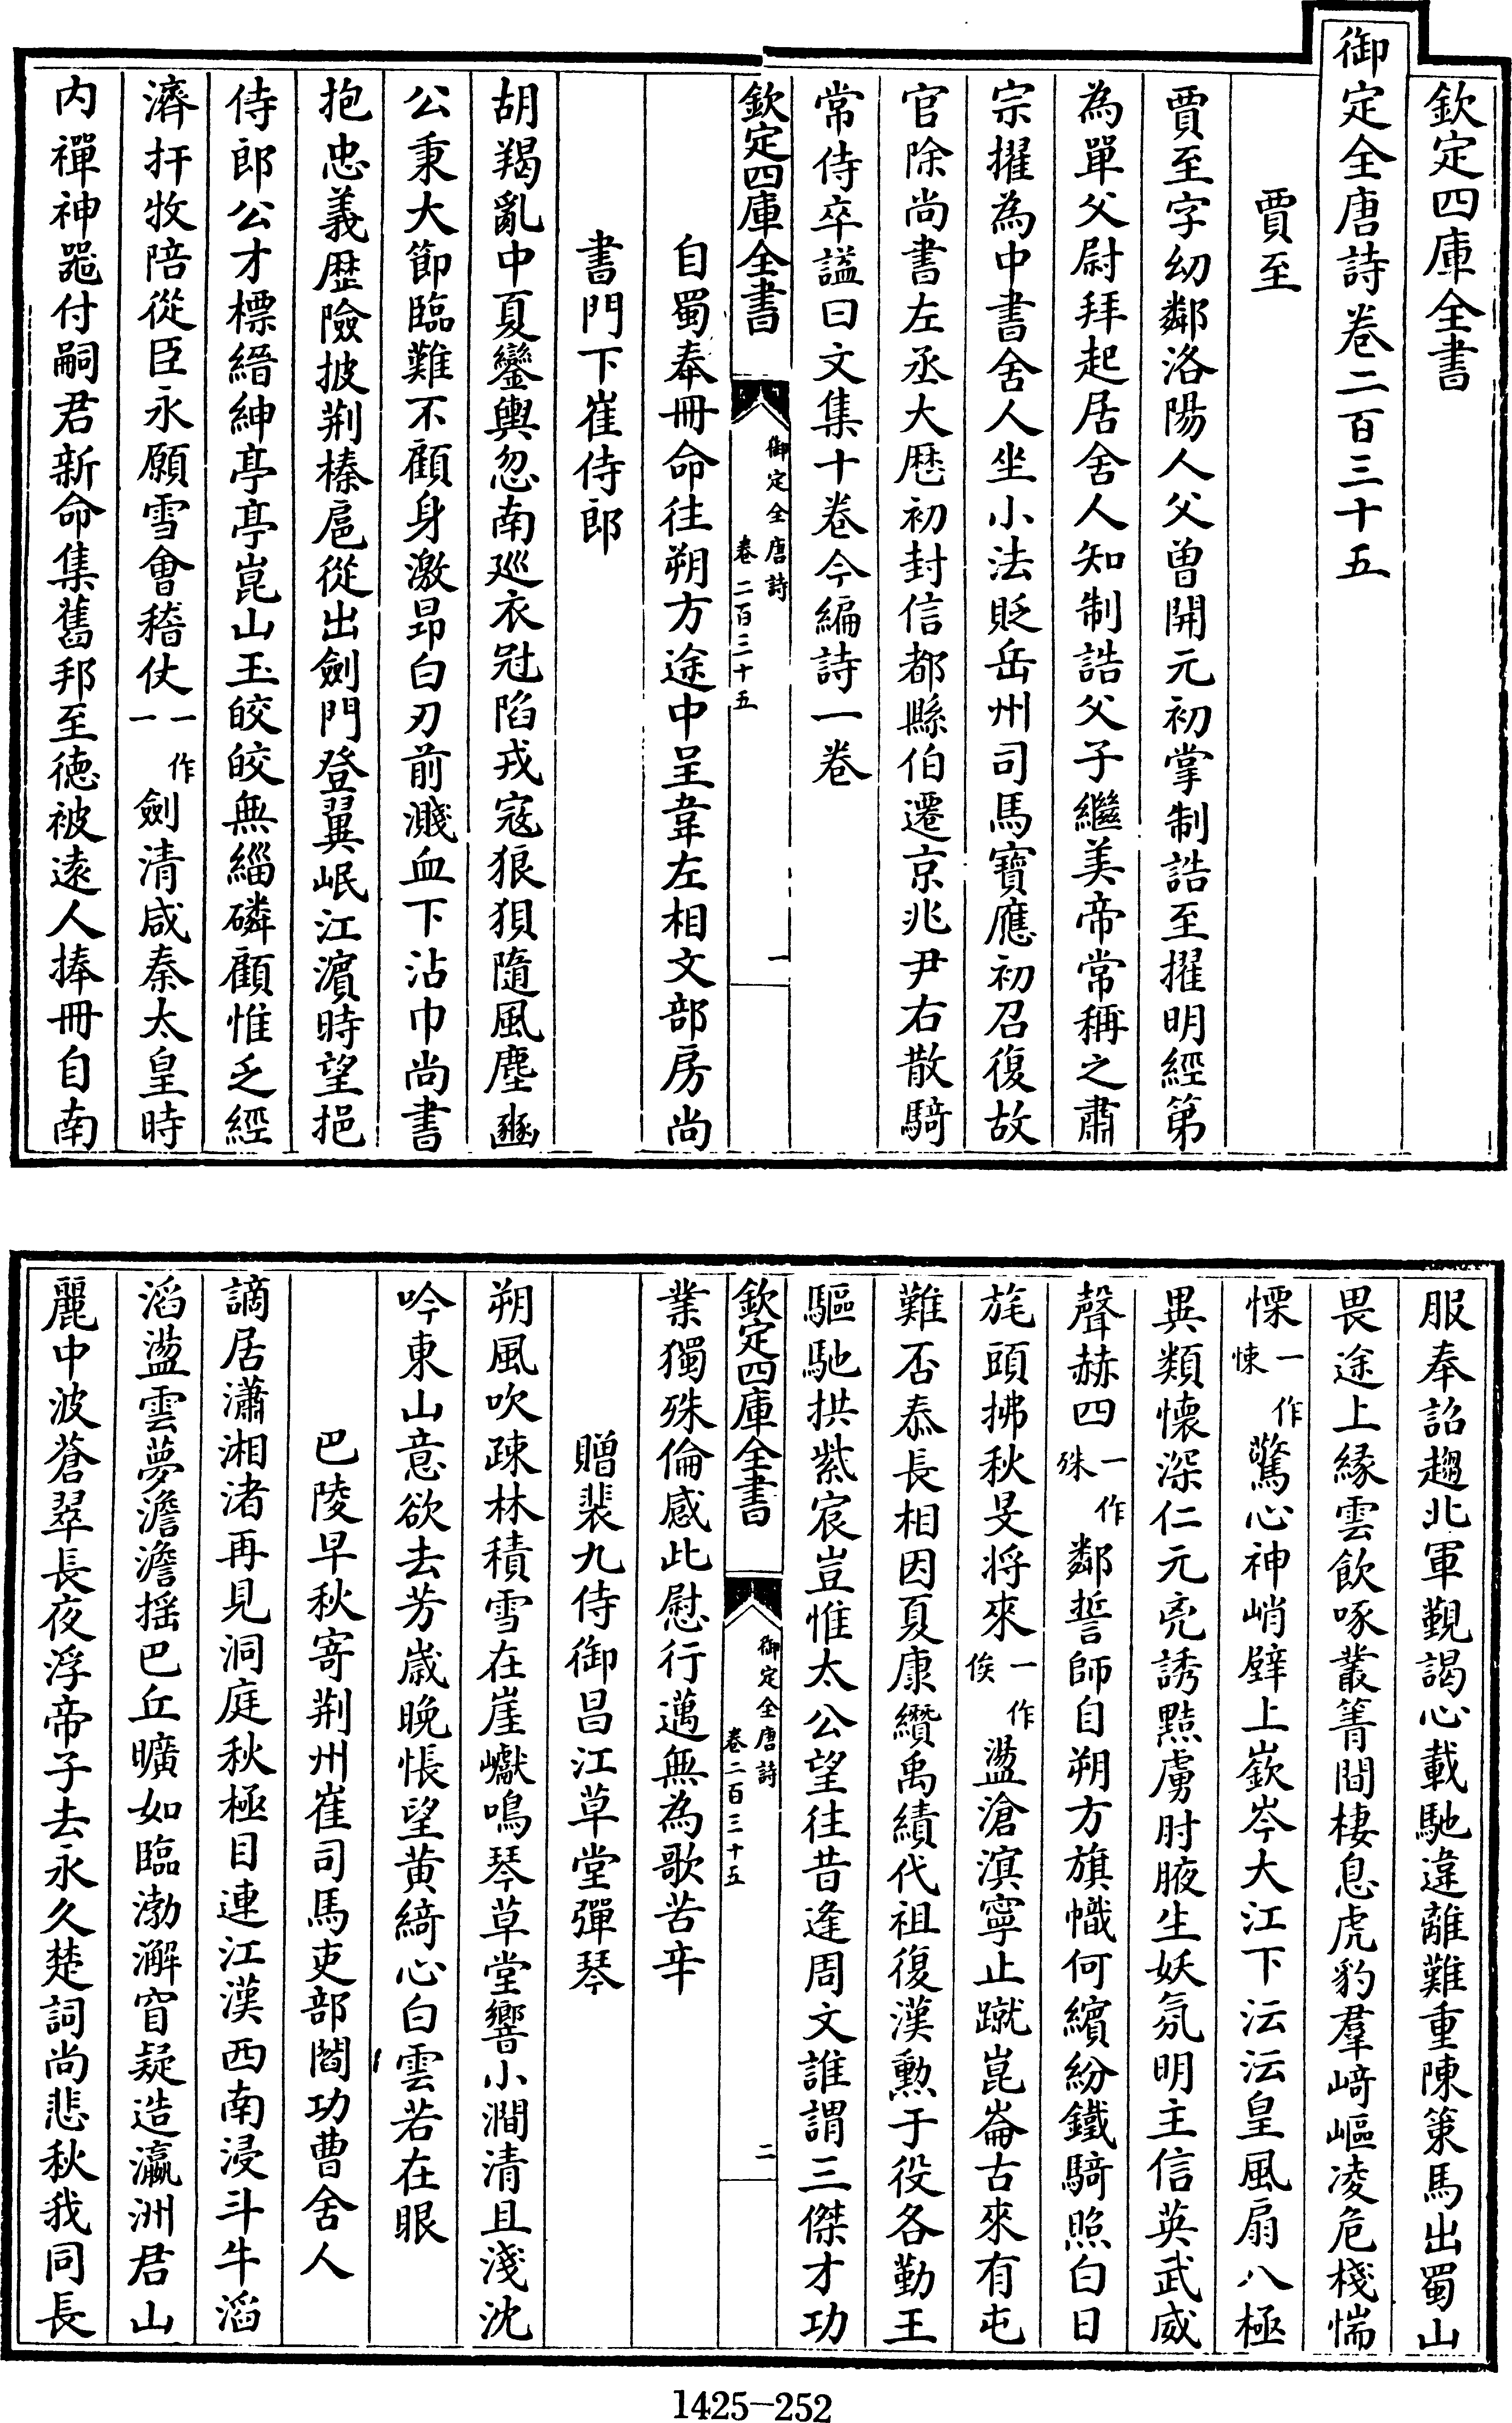 欽定四庫全書
御定全唐詩卷二百三十五
賈至
賈至字幼鄰洛陽人父曽開元初掌制誥至擢明經第
為單父尉拜起居舍人知制誥父子繼美帝常稱之肅
宗擢為中書舍人坐小法貶岳州司馬寶應初召復故
官除尚書左丞大厯初封信都縣伯遷京兆尹右散騎
常侍卒諡曰文集十卷今編詩一卷
欽定四庫全書
御定全唐詩
卷二百三十五
一
自蜀奉冊命往朔方途中呈韋左相文部房尚
書門下崔侍郎
胡羯亂中夏鑾輿忽南巡衣冠陷戎寇狼狽隨風塵豳
公秉大節臨難不顧身激昂白刃前濺血下沾巾尚書
抱忠義歴險披荆榛扈從出劍門登翼岷江濵時望挹
侍郎公才標縉紳亭亭崑山玉皎皎無緇磷顧惟乏經
濟扞牧陪從臣永願雪會稽仗一作一劍清咸秦太皇時
内禪神器付嗣君新命集舊邦至徳被逺人捧冊自南
服奉詔趨北軍覲謁心載馳違離難重陳策馬出蜀山
畏途上緣雲飲啄叢箐間棲息虎豹羣﨑嶇凌危棧惴
慄一作悚驚心神峭壁上嶔岑大江下沄沄皇風扇八極
異類懷深仁元兇誘黠虜肘腋生妖氛明主信英武威
聲赫四一作殊鄰誓師自朔方旗幟何繽紛鐵騎照白日
旄頭拂秋旻将來一作俟盪滄溟寧止蹴崑崙古來有屯
難否泰長相因夏康纘禹績代祖復漢勲于役各勤王
驅馳拱紫宸豈惟太公望往昔逢周文誰謂三傑才功
欽定四庫全書
御定全唐詩
卷二百三十五
二
業獨殊倫感此慰行邁無為歌苦辛
贈裴九侍御昌江草堂彈琴
朔風吹疎林積雪在崖巘鳴琴草堂響小澗清且淺沈
吟東山意欲去芳嵗晚悵望黄綺心白雲若在眼
巴陵早秋寄荆州崔司馬吏部閻功曹舍人
謫居瀟湘渚再見洞庭秋極目連江漢西南浸斗牛滔
滔盪雲夢澹澹摇巴丘曠如臨渤澥窅疑造瀛洲君山
麗中波蒼翠長夜浮帝子去永久楚詞尚悲秋我同長
1425-252